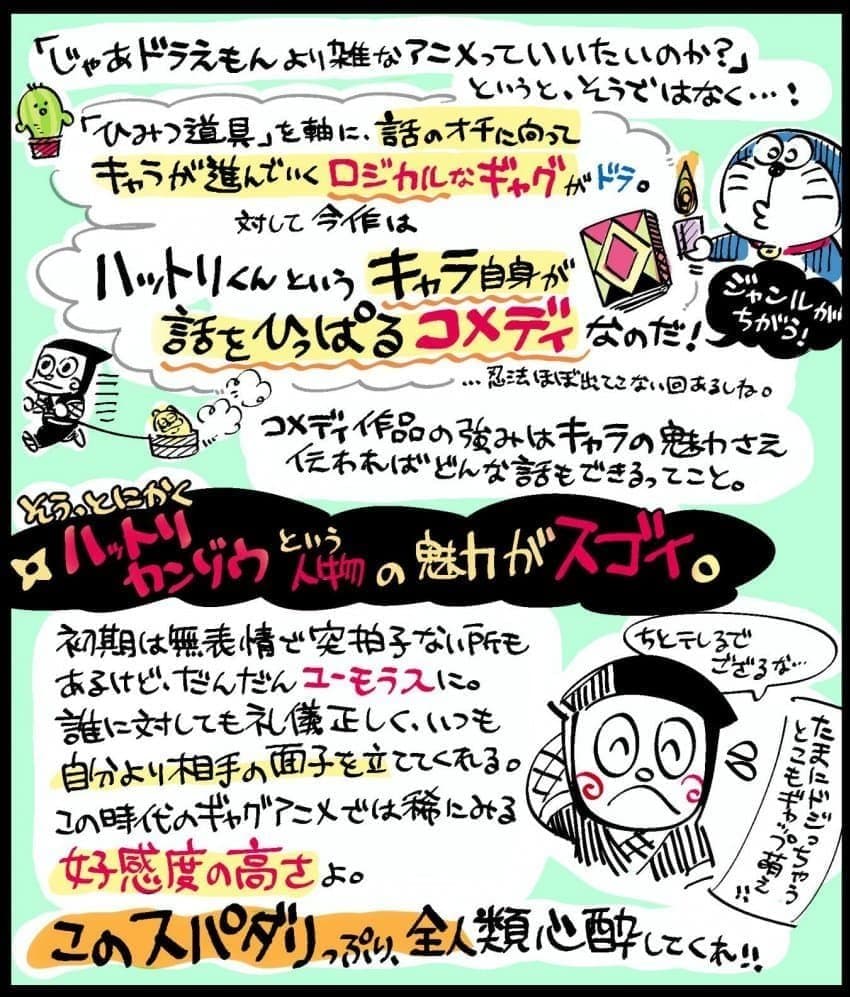 「じゃあドラえもんより雑なアニメっていいたいのか?」
というと、そうではなく…!
「ひみつ道具」を軸に、話のオチに向って
キャラが進んでいくロジカルなギャグがドラ。
対して今作は
ハットリくんというキャラ自身が
話をひっぱるコメディなのだ!
ジャンルが
ちがう!
…忍法ほぼ出てこない回あるしね。
コメディ作品の強みはキャラの魅力さえ
伝わればどんな話もできるってこと。
そうっとにかく
ハットリ
カンゾウ
という
人物
の魅力がスゴイ。
初期は無表情で突拍子ない所も
あるけど、だんだんユーモラスに。
誰に対しても礼儀正しく、いつも
自分より相手の面子を立ててくれる。
この時代のギャグアニメでは稀にみる
好感度の高さよ。
ちとテレるで
ござるな…
たまにドジっちゃう
とこもギャップ萌え!!
このスパダリっぷり、全人類心酔してくれ!!